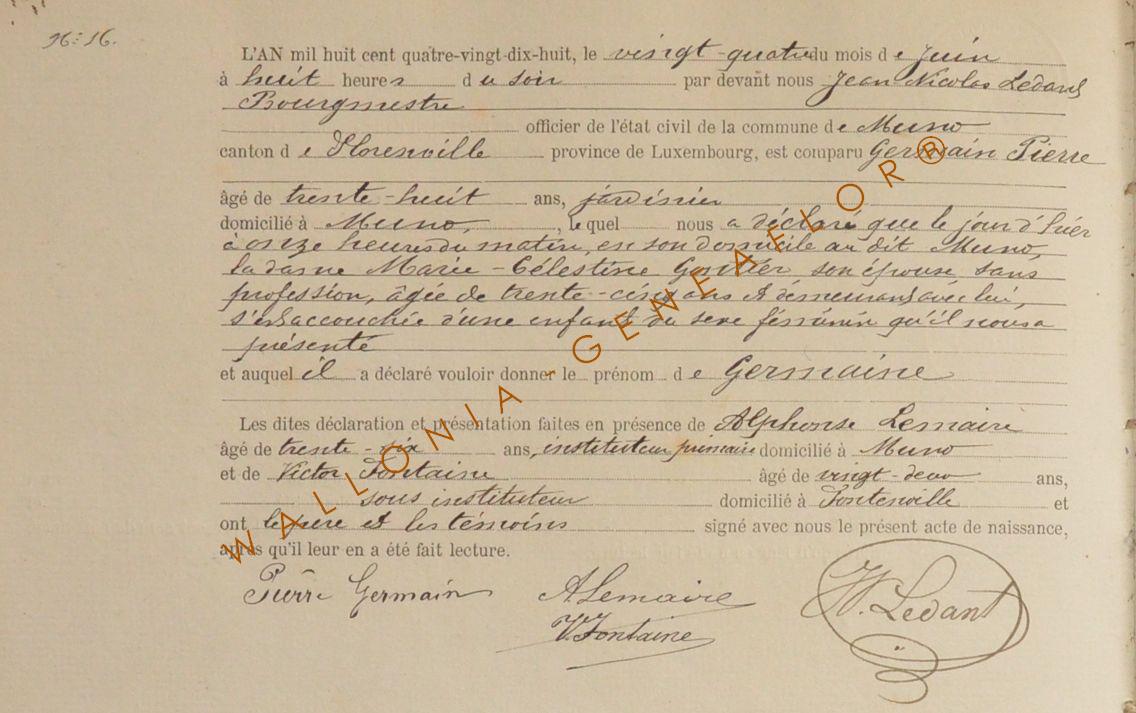 N° 16.
L'AN mil huit cent quatre-vingt-dix-huit, le vingt-quatre du mois de Juin
à huit heures du soir par devant nous Jean Nicolas Ledant
Bourgmestre
officier de l'état civil de la commune de Muno
canton de Florenville province de Luxembourg, est comparu Germain Pierre
âgé de trente-huit ans, jardinier
domicilié à Muno, lequel nous a déclaré que le jour d'hier
à onze heures du matin, en son domicile au dit Muno,
la dame Marie-Célestine Gontier son épouse sans
profession, âgée de trente-cinq ans et demeurant avec lui,
s'est accouchée d'une enfant du sexe féminin qu'il nous a
présenté
et auquel il a déclaré vouloir donner le prénom de Germaine
Les dites déclaration et présentation faites en présence de Alphonse Lemaire
âgé de trente-six ans, instituteur primaire domicilié à Muno
et de Victor Fontaine âgé de vingt-deux ans,
sous instituteur domicilié à Fontenoille et
ont le père et les témoins signé avec nous le présent acte de naissance,
après qu'il leur en a été fait lecture.
Pierre Germain A Lemaire N. Ledant
V. Fontaine
WALLONIA-GENEAFLOR®